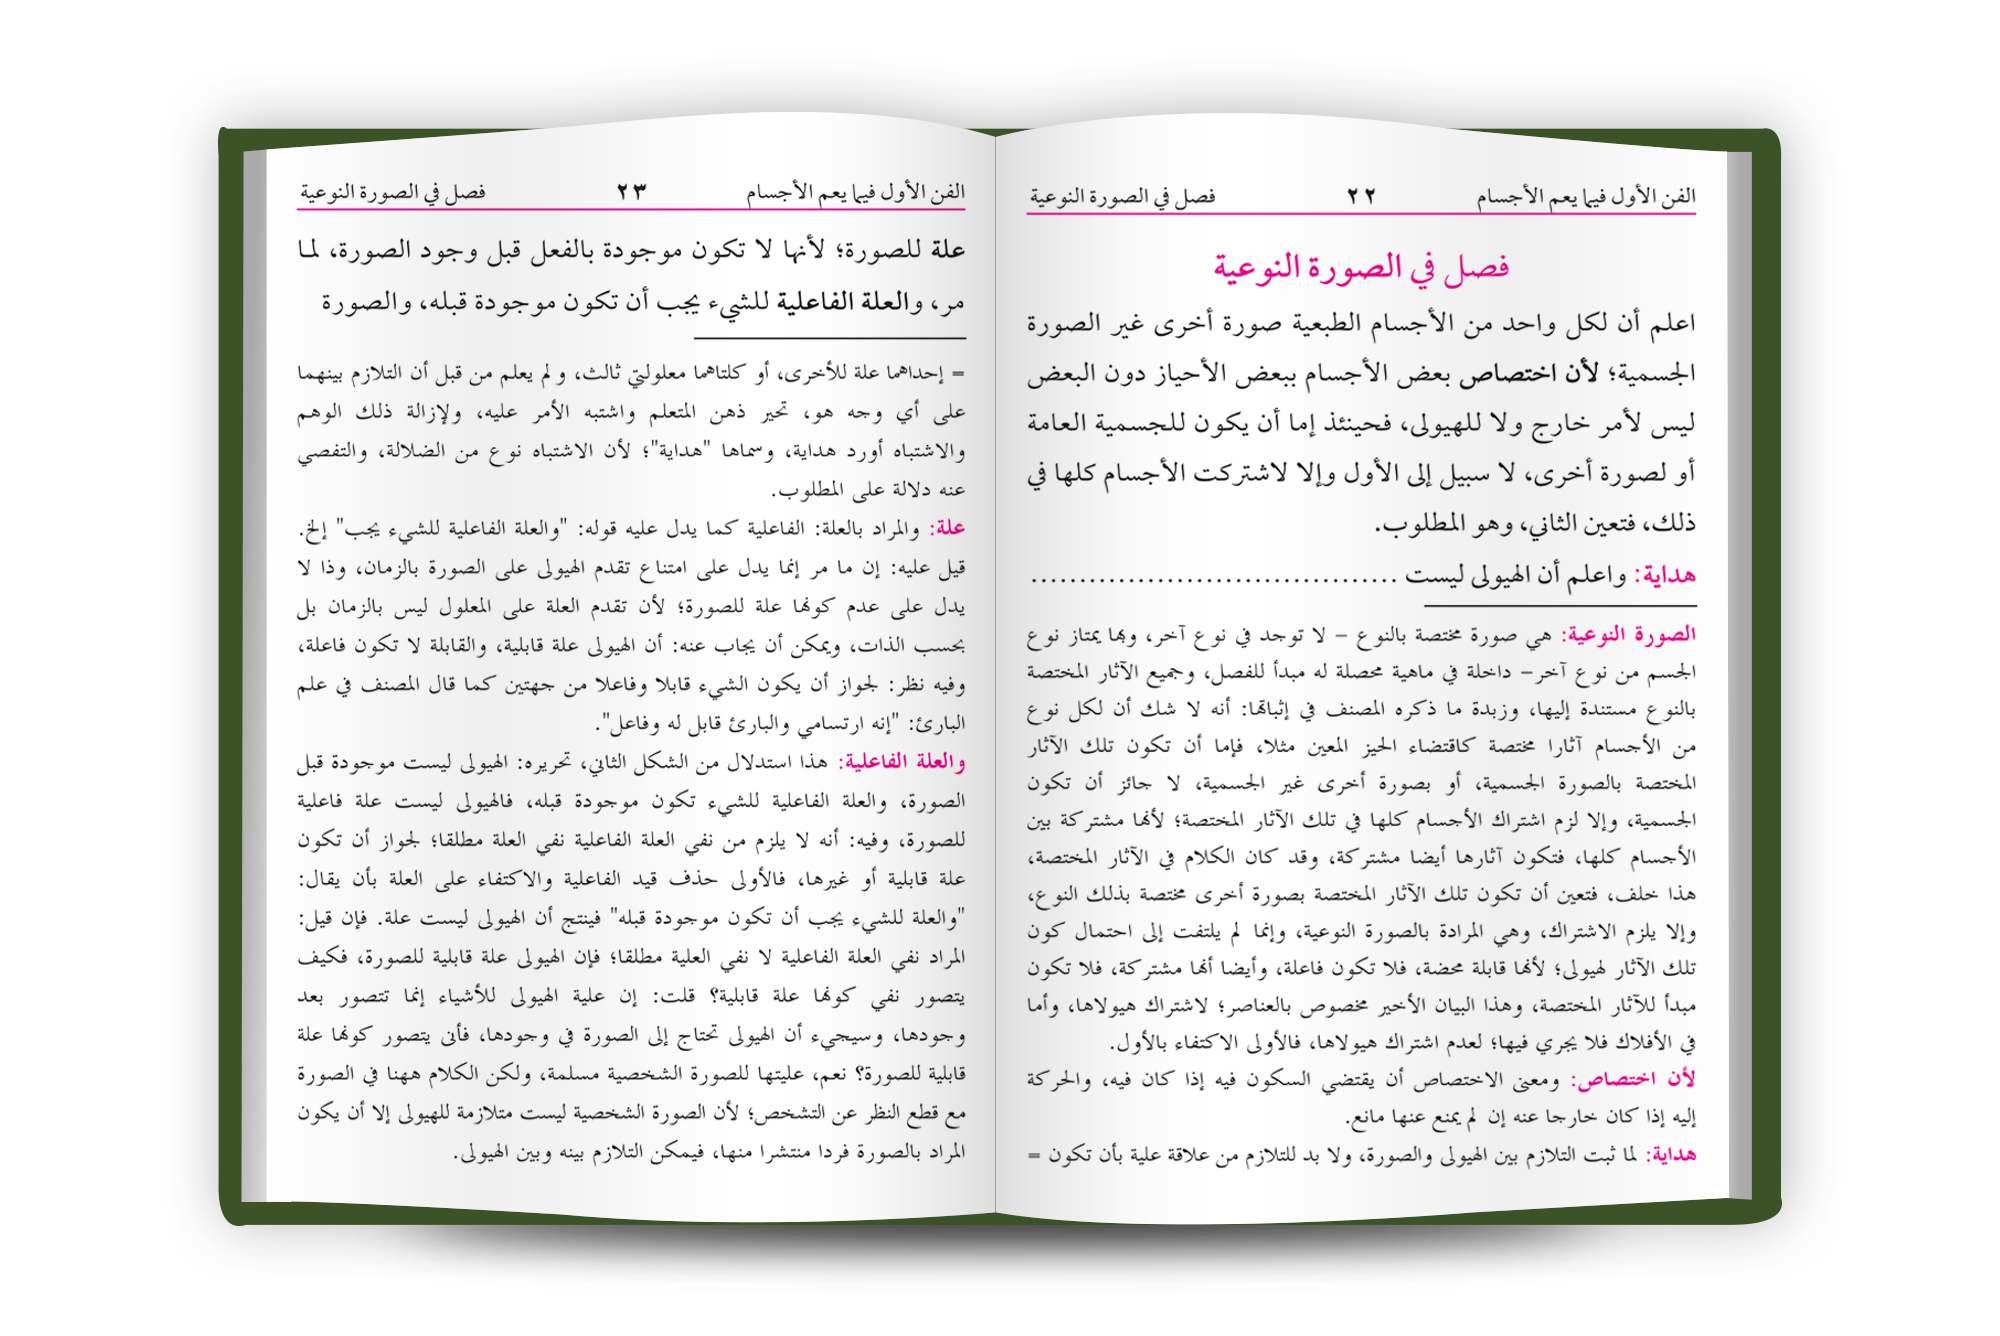 الفن الأول فيما يعم الأجسام ٢٢ فصل في الصورة النوعية
فصل في الصورة النوعية
اعلم أن لكل واحد من الأجسام الطبعية صورة أخرى غير الصورة
الجسمية؛ لأن اختصاص بعض الأجسام ببعض الأحياز دون البعض
ليس لأمر خارج ولا للهيولى، فحينئذ إما أن يكون للجسمية العامة
أو لصورة أخرى، لا سبيل إلى الأول وإلا لاشتركت الأجسام كلها في
ذلك، فتعين الثاني، وهو المطلوب.
هداية: واعلم أن الهيولى ليست ......................................
الصورة النوعية: هي صورة مختصة بالنوع – لا توجد في نوع آخر، وبها يمتاز نوع
الجسم من نوع آخر– داخلة في ماهية محصلة له مبدأ للفصل، وجميع الآثار المختصة
بالنوع مستندة إليها، وزبدة ما ذكره المصنف في إثباتها: أنه لا شك أن لكل نوع
من الأجسام آثارا مختصة كاقتضاء الحيز المعين مثلا، فإما أن تكون تلك الآثار
المختصة بالصورة الجسمية، أو بصورة أخرى غير الجسمية، لا جائز أن تكون
الجسمية، وإلا لزم اشتراك الأجسام كلها في تلك الآثار المختصة؛ لأنها مشتركة بين
الأجسام كلها، فتكون آثارها أيضا مشتركة، وقد كان الكلام في الآثار المختصة،
هذا خلف، فتعين أن تكون تلك الآثار المختصة بصورة أخرى مختصة بذلك النوع،
وإلا يلزم الاشتراك، وهي المرادة بالصورة النوعية، وإنما لم يلتفت إلى احتمال كون
تلك الآثار لهيولى؛ لأنها قابلة محضة، فلا تكون فاعلة، وأيضا أنها مشتركة، فلا تكون
مبدأ للآثار المختصة، وهذا البيان الأخير مخصوص بالعناصر؛ لاشتراك هيولاها، وأما
في الأفلاك فلا يجري فيها؛ لعدم اشتراك هيولاها، فالأولى الاكتفاء بالأول.
لأن اختصاص: ومعنى الاختصاص أن يقتضي السكون فيه إذا كان فيه، والحركة
إليه إذا كان خارجا عنه إن لم يمنع عنها مانع.
هداية: لما ثبت التلازم بين الهيولى والصورة، ولا بد للتلازم من علاقة علية بأن تكون =
الفن الأول فيما يعم الأجسام ٢٣ فصل في الصورة النوعية
علة للصورة؛ لأنها لا تكون موجودة بالفعل قبل وجود الصورة، لما
مر، والعلة الفاعلية للشيء يجب أن تكون موجودة قبله، والصورة
= إحداهما علة للأخرى، أو كلتاهما معلولتي ثالث، ولم يعلم من قبل أن التلازم بينهما
على أي وجه هو، تحير ذهن المتعلم واشتبه الأمر عليه، ولإزالة ذلك الوهم
والاشتباه أورد هداية، وسماها "هداية"؛ لأن الاشتباه نوع من الضلالة، والتفصي
عنه دلالة على المطلوب.
علة: والمراد بالعلة: الفاعلية كما يدل عليه قوله: "والعلة الفاعلية للشيء يجب" إلخ.
قيل عليه: إن ما مر إنما يدل على امتناع تقدم الهيولى على الصورة بالزمان، وذا لا
يدل على عدم كونها علة للصورة؛ لأن تقدم العلة على المعلول ليس بالزمان بل
بحسب الذات، ويمكن أن يجاب عنه: أن الهيولى علة قابلية، والقابلة لا تكون فاعلة،
وفيه نظر: لجواز أن يكون الشيء قابلا وفاعلا من جهتين كما قال المصنف في علم
البارئ: "إنه ارتسامي والبارئ قابل له وفاعل".
والعلة الفاعلية: هذا استدلال من الشكل الثاني، تحريره: الهيولى ليست موجودة قبل
الصورة، والعلة الفاعلية للشيء تكون موجودة قبله، فالهيولى ليست علة فاعلية
للصورة، وفيه: أنه لا يلزم من نفي العلة الفاعلية نفي العلة مطلقا؛ لجواز أن تكون
علة قابلية أو غيرها، فالأولى حذف قيد الفاعلية والاكتفاء على العلة بأن يقال:
"والعلة للشيء يجب أن تكون موجودة قبله" فينتج أن الهيولى ليست علة. فإن قيل:
المراد نفي العلة الفاعلية لا نفي العلية مطلقا؛ فإن الهيولى علة قابلية للصورة، فكيف
يتصور نفي كونها علة قابلية؟ قلت: إن علية الهيولى للأشياء إنما تتصور بعد
وجودها، وسيجيء أن الهيولى تحتاج إلى الصورة في وجودها، فأنى يتصور كونها علة
قابلية للصورة؟ نعم، عليتها للصورة الشخصية مسلمة، ولكن الكلام ههنا في الصورة
مع قطع النظر عن التشخص؛ لأن الصورة الشخصية ليست متلازمة للهيولى إلا أن يكون
المراد بالصورة فردا منتشرا منها، فيمكن التلازم بينه وبين الهيولى.